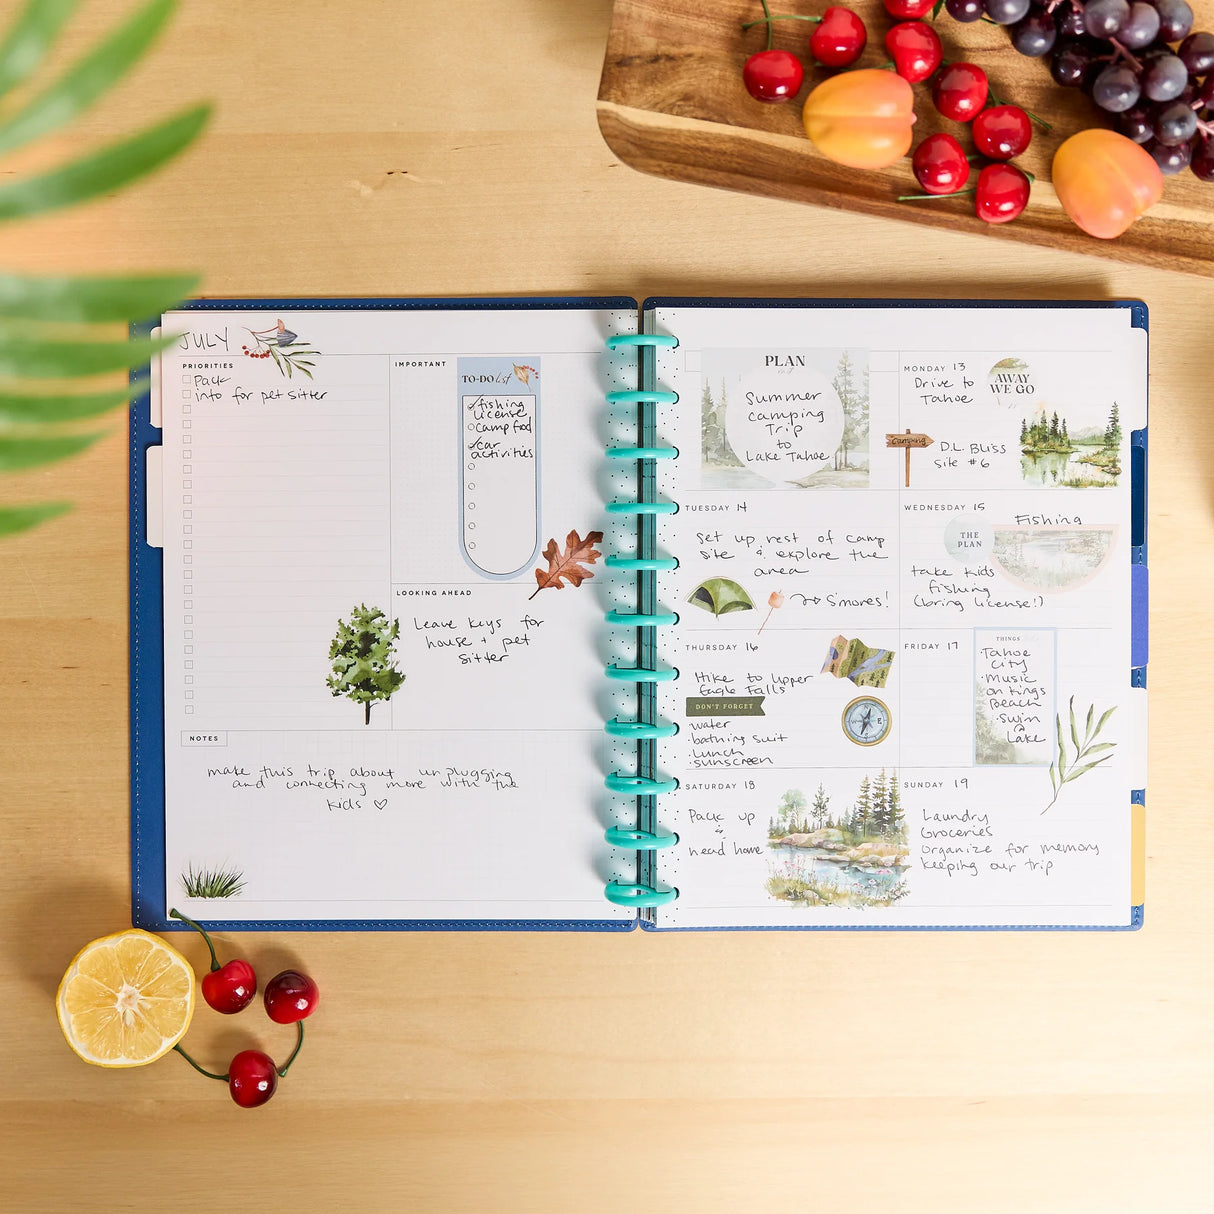 JULY
PRIORITIES
Pack
info for pet sitter
IMPORTANT
TO-DO list
fishing
license
camp food
car
activities
LOOKING AHEAD
Leave keys for
house + pet
sitter
NOTES
make this trip about unplugging
and connecting more with the
kids ♡
PLAN
Summer
camping
Trip
to
Lake Tahoe
MONDAY 13
Drive to
Tahoe
AWAY
WE GO
Camping
D.L. Bliss
site #6
TUESDAY 14
Set up rest of camp
site & explore the
area
S'mores!
WEDNESDAY 15
THE
PLAN
Fishing
take kids
fishing
(bring license!)
THURSDAY 16
Hike to Upper
Eagle Falls
DON'T FORGET
water
·bathing suit
·lunch
·sunscreen
FRIDAY 17
THINGS
·Tahoe
City
·Music
on Kings
Beach
·Swim
@
Lake
SATURDAY 18
Pack up
&
head home
SUNDAY 19
Laundry
Groceries
organize for memory
keeping our trip